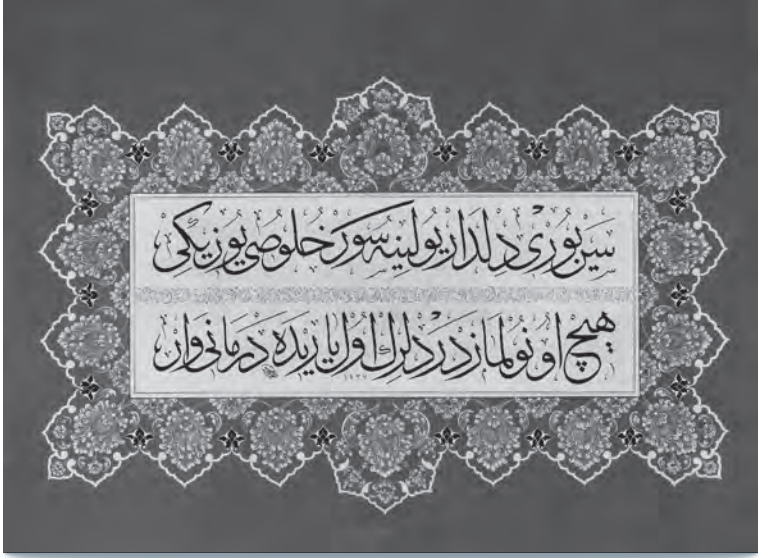 سن یوری دلدار یولینه سور خلوصی یوزیڭی
هیچ اونولماز دردلرك اول یاریده درمانی وار